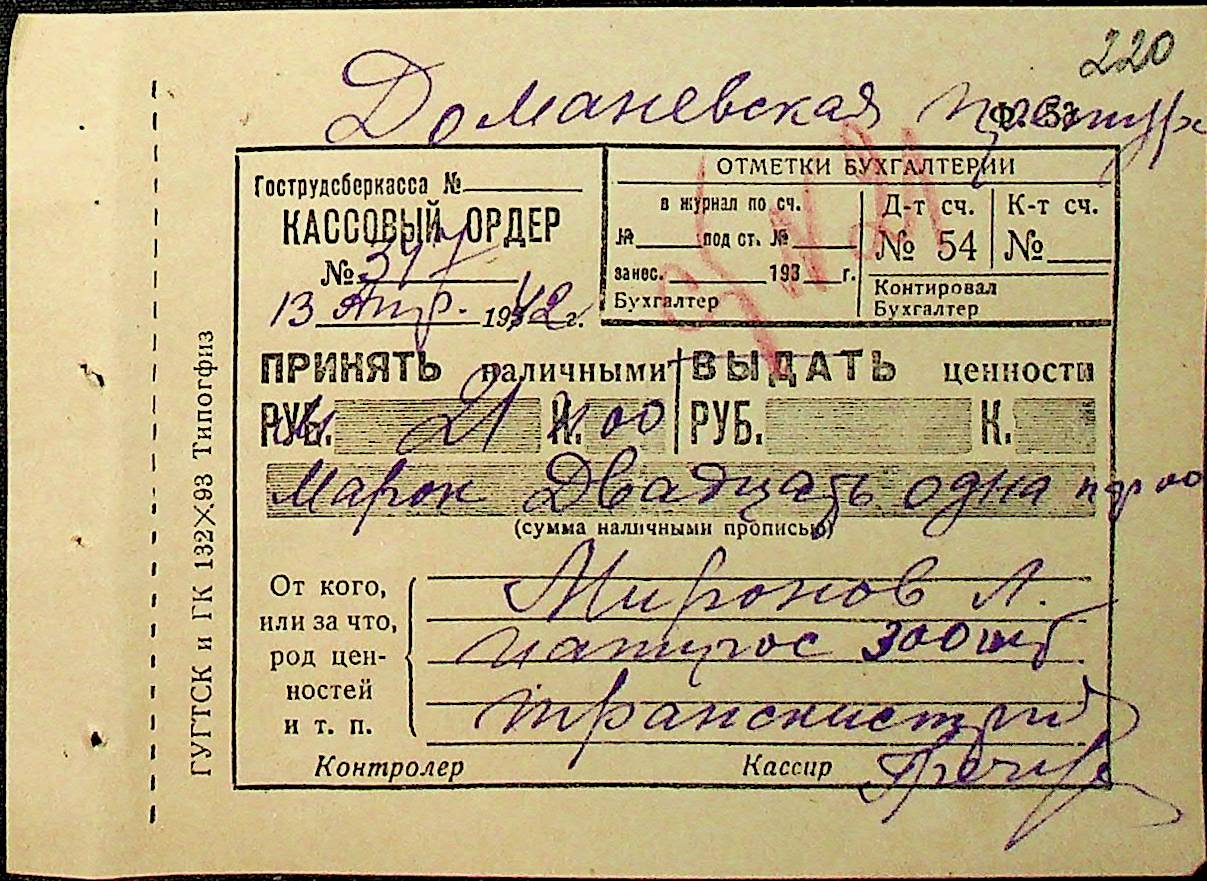 220
Доманевская
Ф. 53
Гострудсберкасса №
КАССОВЫЙ ОРДЕР
№ 347
13 Апр. 1942 г.
ОТМЕТКИ БУХГАЛТЕРИИ
в журнал по сч.
№ под ст. №
занес. 193 г.
Бухгалтер
Д-т сч.
№ 54
К-т сч.
№
Контировал
Бухгалтер
ПРИНЯТЬ наличными
РУБ. 21 К. 00
ВЫДАТЬ ценности
РУБ. К.
Марок Двадцать одна 00
(сумма наличными прописью)
От кого,
или за что,
род цен-
ностей
и т. п.
Миронов Л.
папирос 300 шт
Контролер
Кассир
ГУГТСК и ГК 132×93 Типогфиз